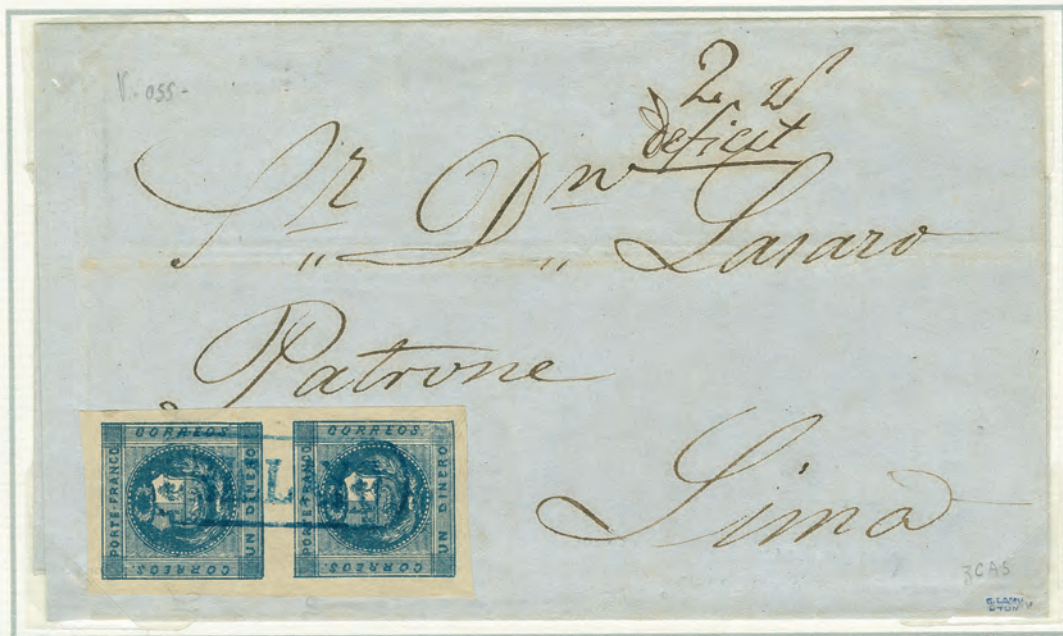 V. 055.
2
deficit
Sr " Dn " Lasaro
Patrone
Lima
CORREOS.
PORTE-FRANCO
UN DINERO
CORREOS.
CORREOS.
PORTE-FRANCO
UN DINERO
CORREOS.
3CA5